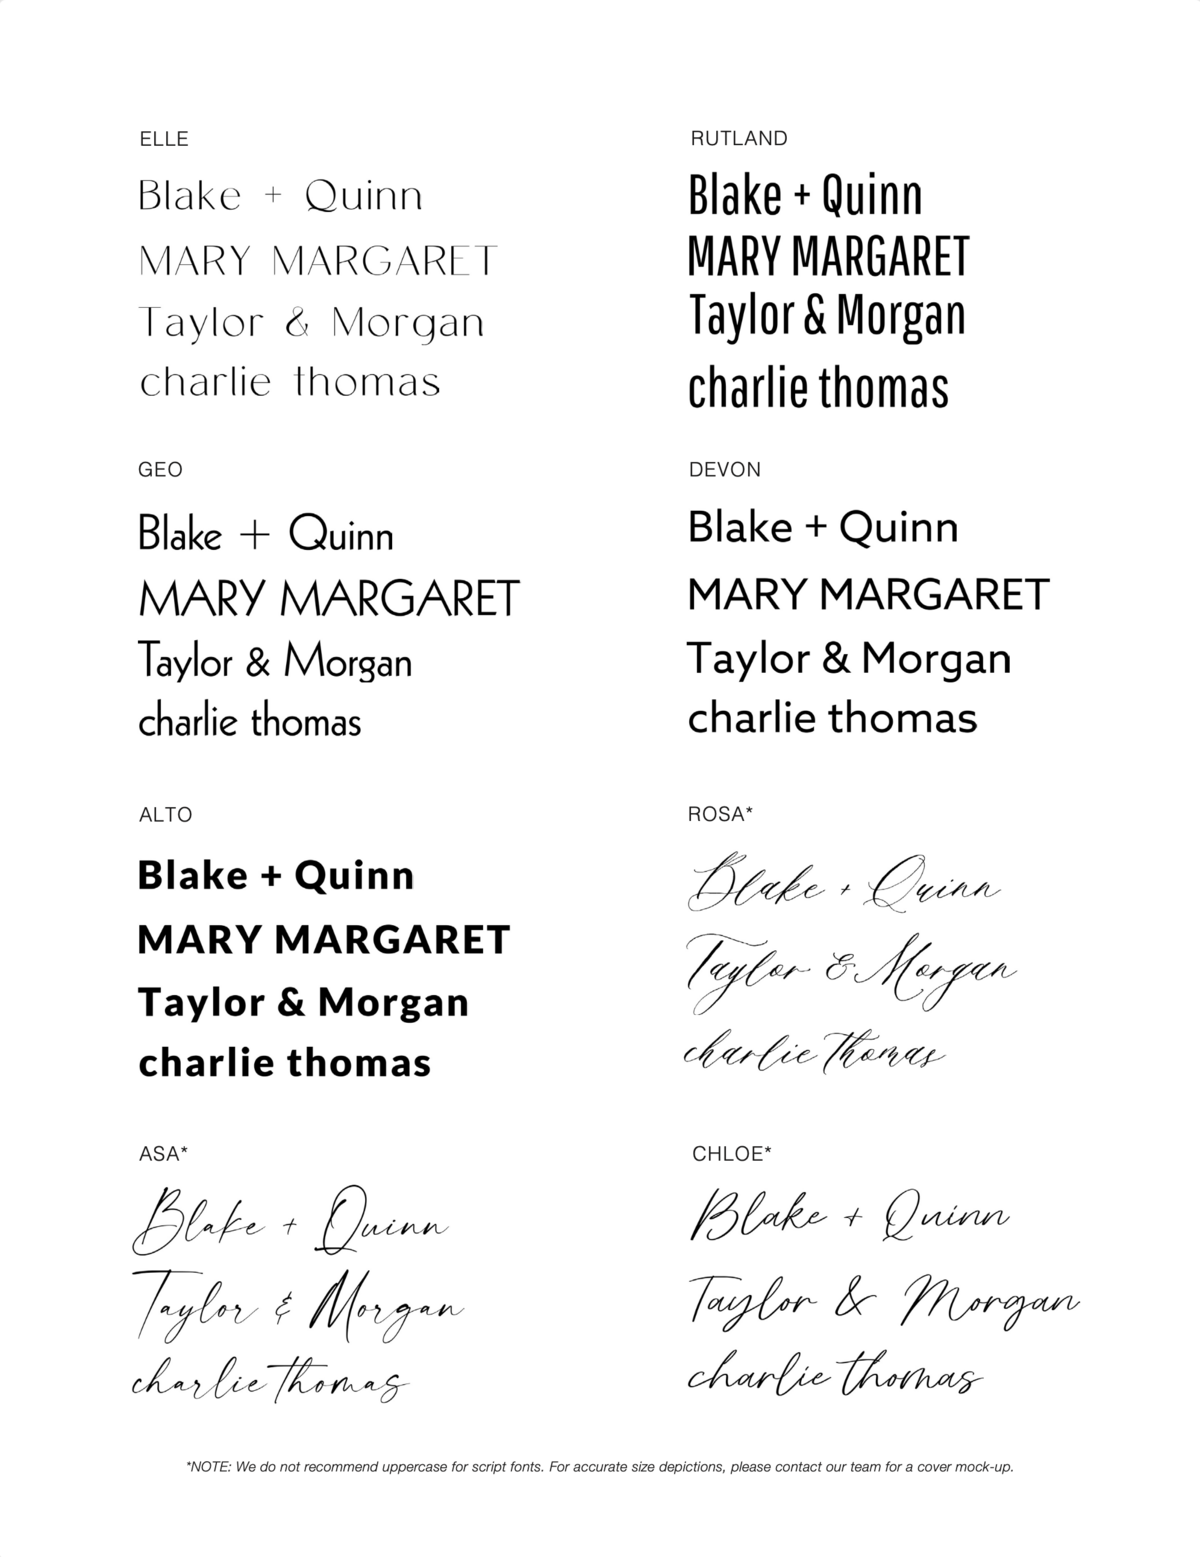 ELLE
Blake + Quinn
MARY MARGARET
Taylor & Morgan
charlie thomas
RUTLAND
Blake + Quinn
MARY MARGARET
Taylor & Morgan
charlie thomas
GEO
Blake + Quinn
MARY MARGARET
Taylor & Morgan
charlie thomas
DEVON
Blake + Quinn
MARY MARGARET
Taylor & Morgan
charlie thomas
ALTO
Blake + Quinn
MARY MARGARET
Taylor & Morgan
charlie thomas
ROSA*
Blake + Quinn
Taylor & Morgan
charlie thomas
ASA*
Blake + Quinn
Taylor & Morgan
charlie thomas
CHLOE*
Blake + Quinn
Taylor & Morgan
charlie thomas
*NOTE: We do not recommend uppercase for script fonts. For accurate size depictions, please contact our team for a cover mock-up.